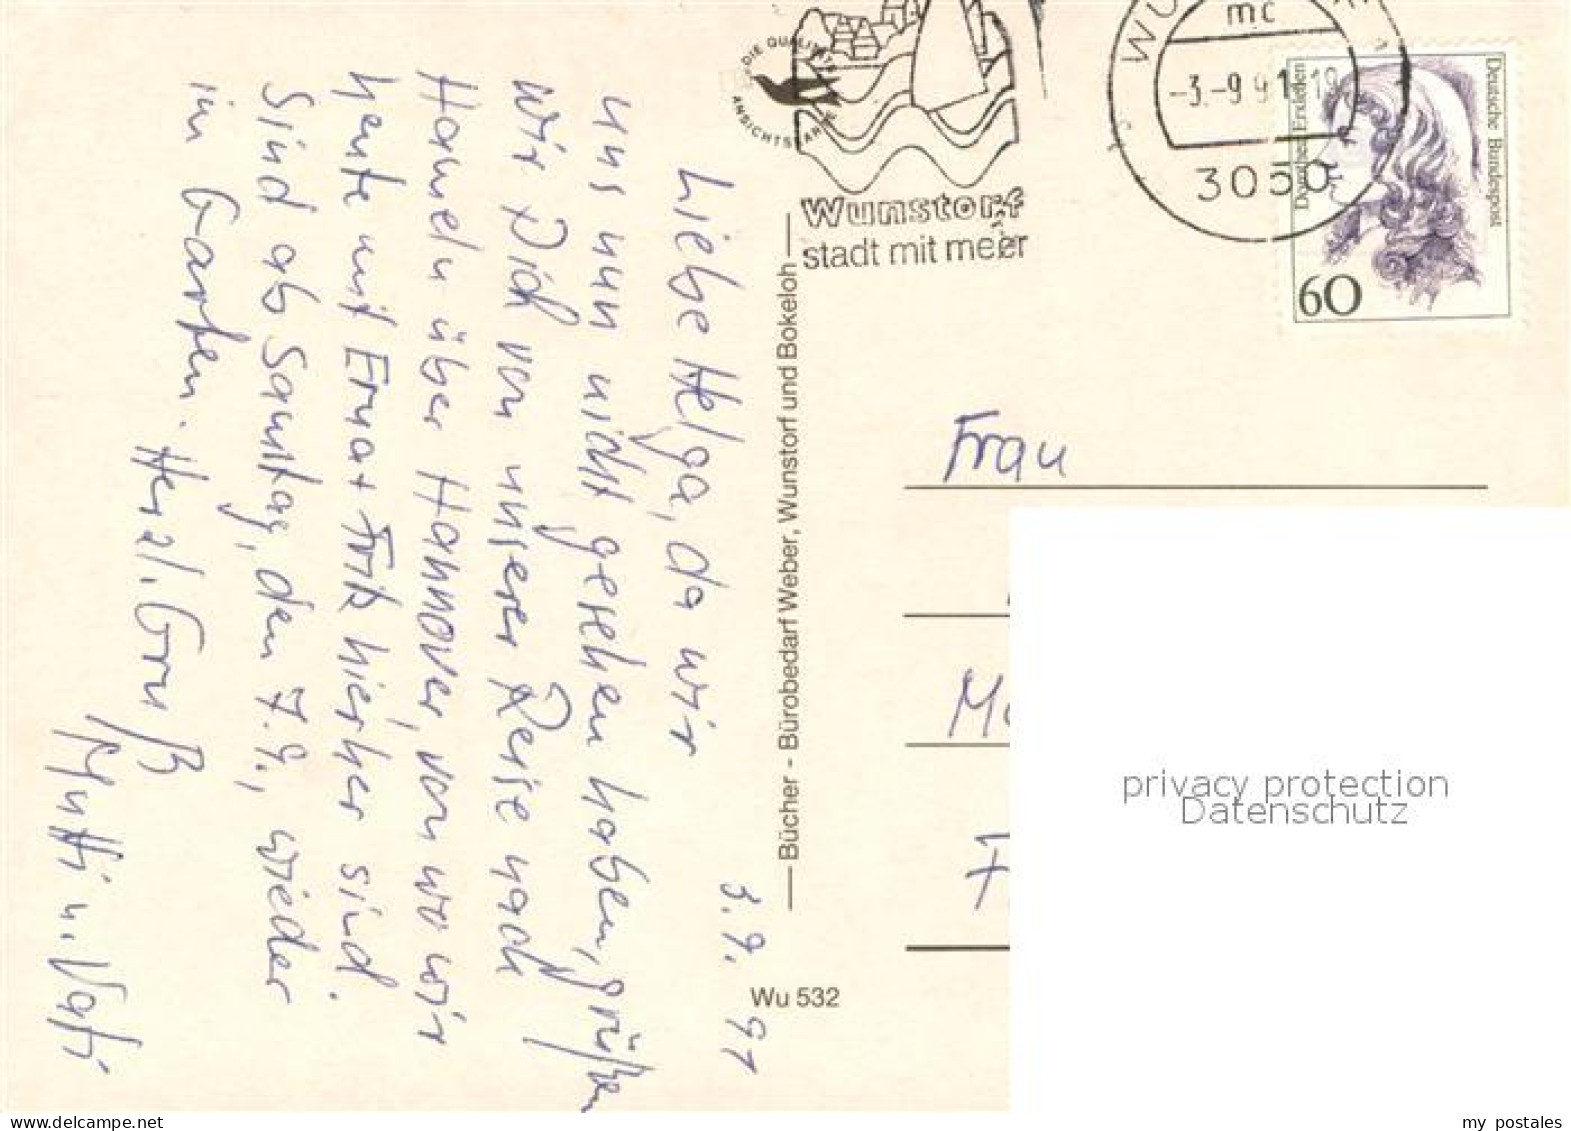 3.9.91
Liebe Helga, da wir
uns nun nicht gesehen haben, grüßen
wir Dich von unserer Reise nach
Hameln über Hannover, von wo wir
heute mit Erna + Fritz hierher sind.
Sind ab Samstag, den 7.9., wieder
in Garten. Herzl. Gruß
Mutti u. Vati
DIE QUALITÄTS
ANSICHTSKARTE
Wunstorf
stadt mit meer
mc
-3.-9 91-19
3050
Deutsche Bundespost
Dorothea Erxleben
60
Bücher - Bürobedarf Weber, Wunstorf und Bokeloh
Wu 532
Frau
privacy protection
Datenschutz
www.delcampe.net
my_postales